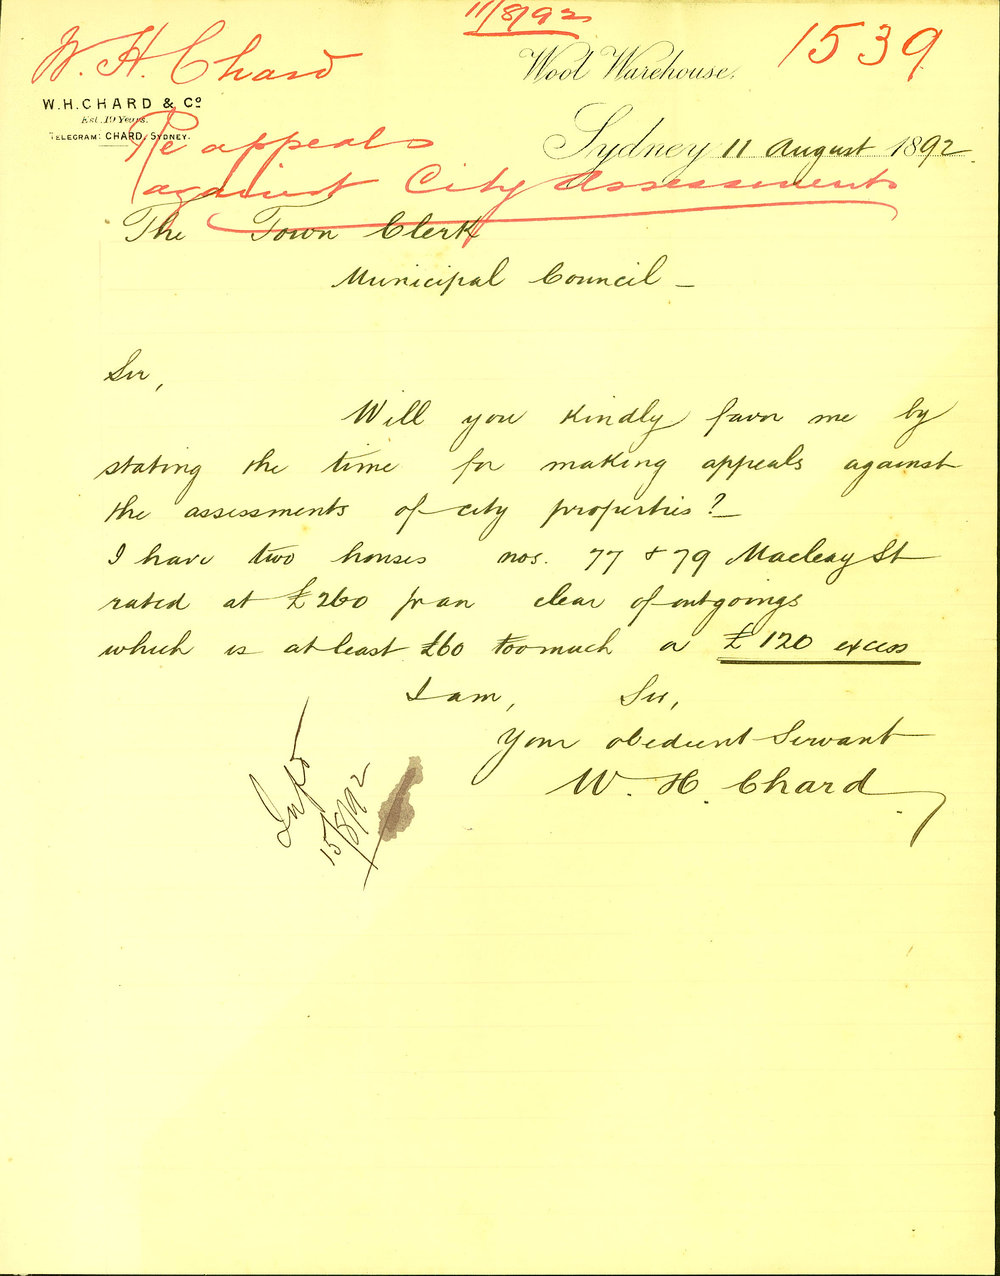 11/8/92
1539
W. H. Chard
Wool Warehouse,
W. H. CHARD & Co
Est. 19 Years.
TELEGRAM: CHARD, SYDNEY.
Sydney 11 August 1892
Re appeals
against City Assessments
The Town Clerk
Municipal Council -
Sir,
Will you kindly favor me by
stating the time for making appeals against
the assessments of city properties? -
I have two houses nos. 77 & 79 Macleay St
rated at £260 pr an clear of outgoings
which is at least £60 too much or £120 excess
I am, Sir,
Your obedient Servant
W. H. Chard
15/8/92